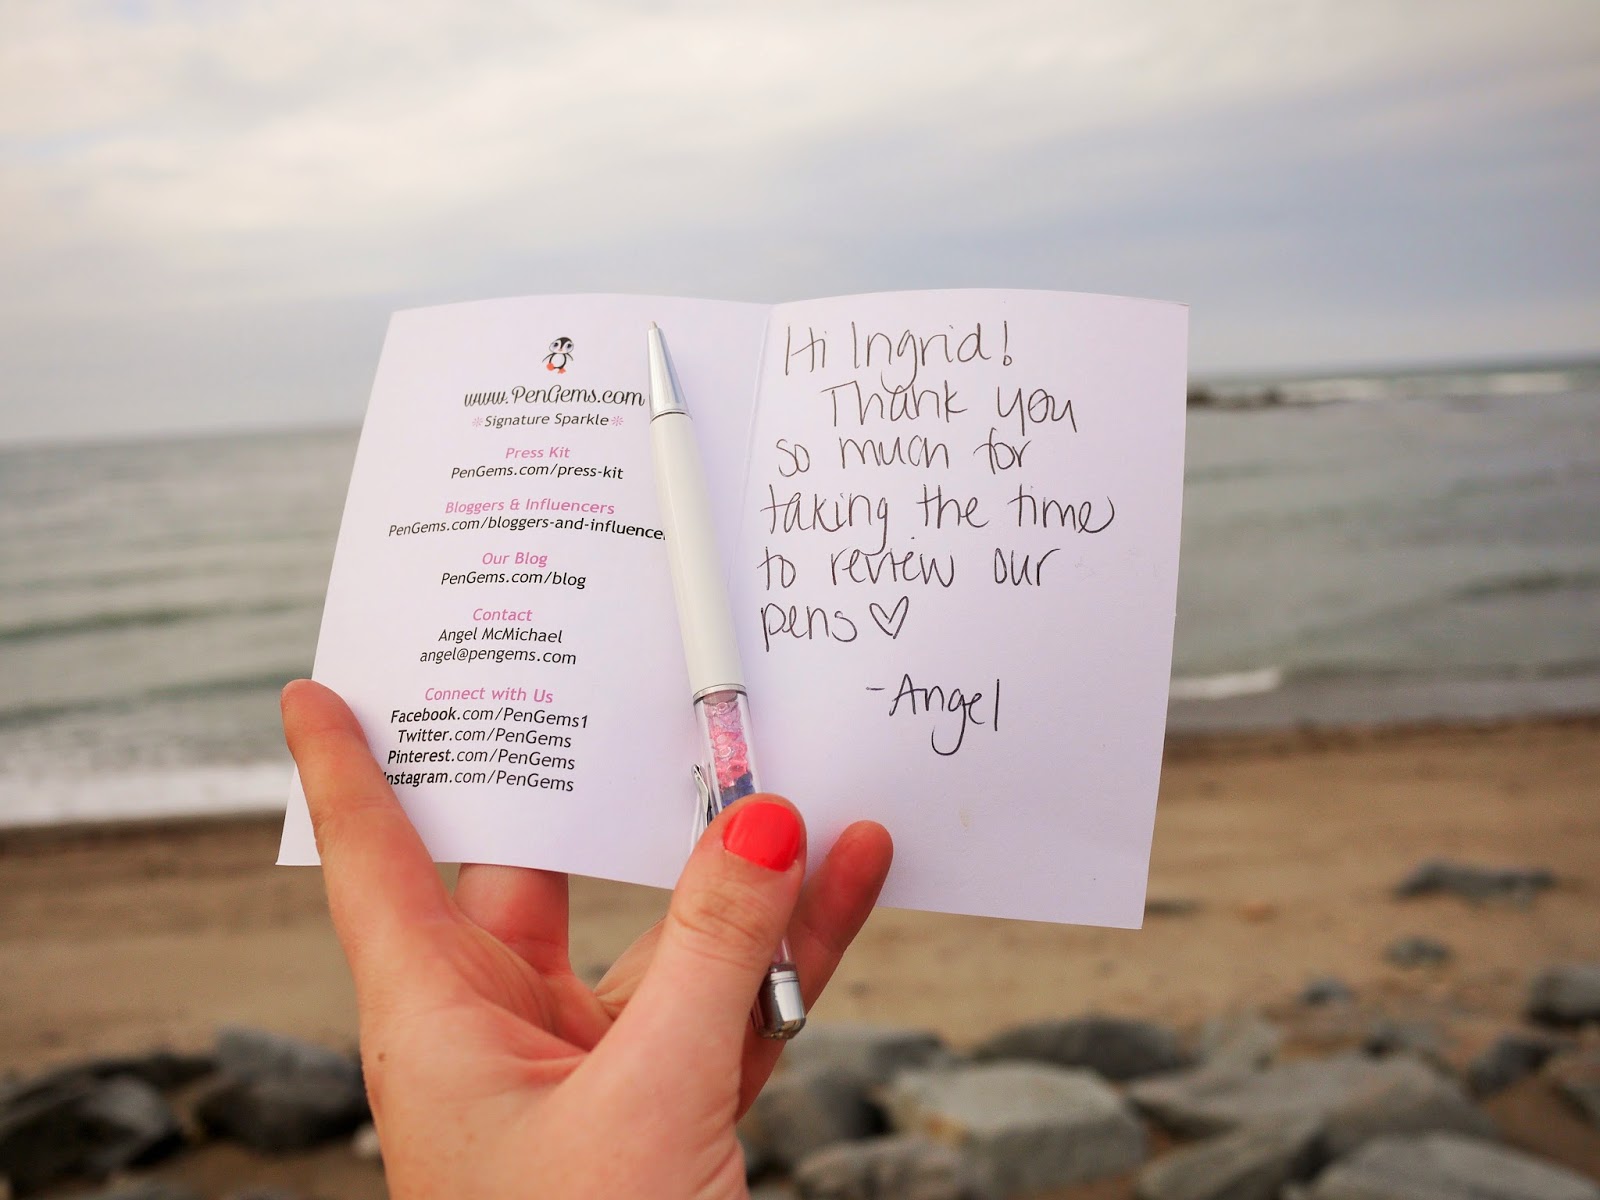 www.PenGems.com
Signature Sparkle
Press Kit
PenGems.com/press-kit
Bloggers & Influencers
PenGems.com/bloggers-and-influence
Our Blog
PenGems.com/blog
Contact
Angel McMichael
angel@pengems.com
Connect with Us
Facebook.com/PenGems1
Twitter.com/PenGems
Pinterest.com/PenGems
Instagram.com/PenGems
Hi Ingrid!
Thank you
so much for
taking the time
to review our
pens ♡
-Angel